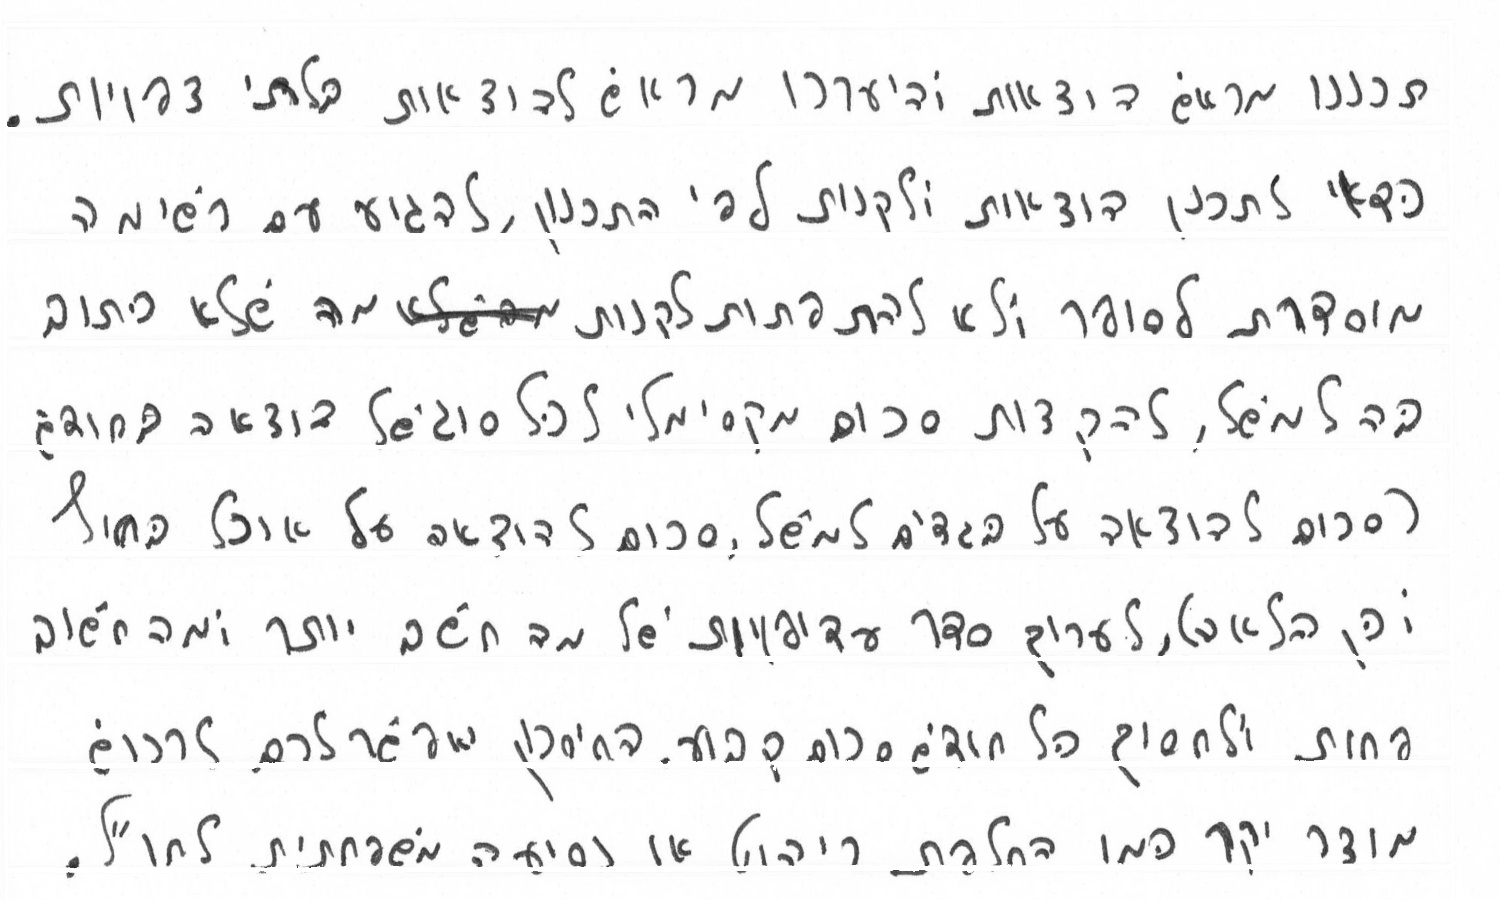 תכננו מראש הוצאות והיערכו מראש להוצאות בלתי צפויות.
כדאי לתכנן הוצאות ולקנות לפי התכנון, להגיע עם רשימה
מוסדרת לסופר ולא להתפתות לקנות מה שלא מה שלא כיתוב
בה למשל, להקדות סכום מקסימלי לכל סוג של הוצאה בחודש
(סכום להוצאה על בגדים למשל, סכום להוצאה על אוכל בחוץ
וכן הלאה), לערוך סדר עדיפויות של מה חשב יותר ומה חשוב
פחות ולחסוך כל חודש סכום קבוע. החיסכון שפשר לכם לרכוש
מוצר יקר כמו החלפת ריהוט או נסיעה משפחתית לחו"ל.